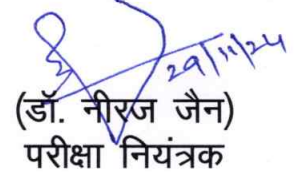 29/11/24
(डॉ. नीरज जैन)
परीक्षा नियंत्रक